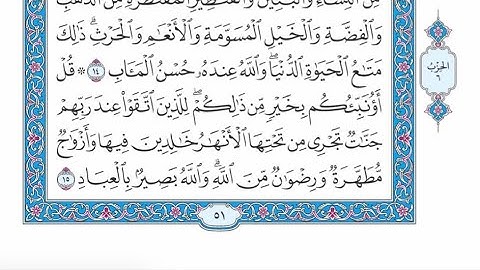 مِنَ ٱلنِّسَآءِ وَٱلۡبَنِينَ وَٱلۡقَنَٰطِيرِ ٱلۡمُقَنطَرَةِ مِنَ ٱلذَّهَبِ
وَٱلۡفِضَّةِ وَٱلۡخَيۡلِ ٱلۡمُسَوَّمَةِ وَٱلۡأَنۡعَٰمِ وَٱلۡحَرۡثِۗ ذَٰلِكَ
مَتَٰعُ ٱلۡحَيَوٰةِ ٱلدُّنۡيَاۖ وَٱللَّهُ عِندَهُۥ حُسۡنُ ٱلۡمَـَٔابِ ١٤ ۞ قُلۡ
أَؤُنَبِّئُكُم بِخَيۡرٖ مِّن ذَٰلِكُمۡۖ لِلَّذِينَ ٱتَّقَوۡاْ عِندَ رَبِّهِمۡ
جَنَّٰتٞ تَجۡرِي مِن تَحۡتِهَا ٱلۡأَنۡهَٰرُ خَٰلِدِينَ فِيهَا وَأَزۡوَٰجٞ
مُّطَهَّرَةٞ وَرِضۡوَٰنٞ مِّنَ ٱللَّهِۗ وَٱللَّهُ بَصِيرُۢ بِٱلۡعِبَادِ ١٥
٥١
الحِزْبُ
٦